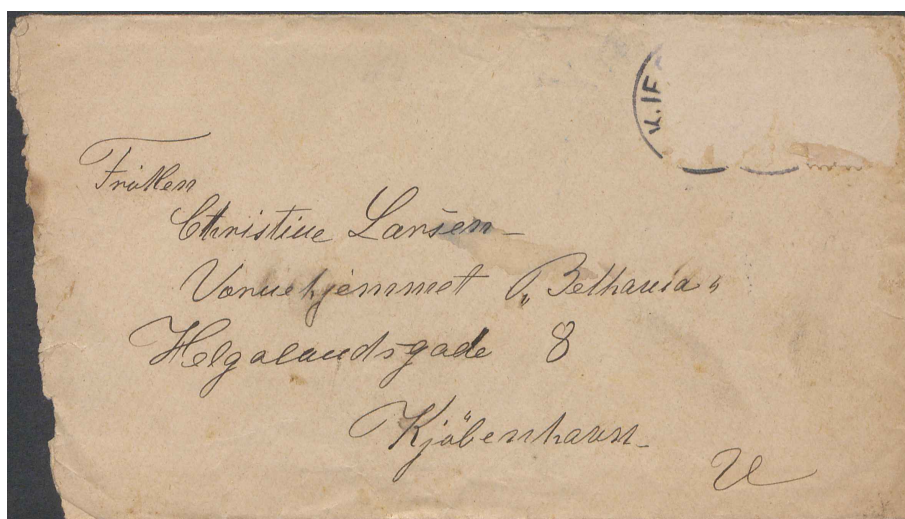 KJØ
Frøken
Christine Larsen
Varnehjemmet „Bethania"
Helgolandsgade 8
Kjöbenhavn
V